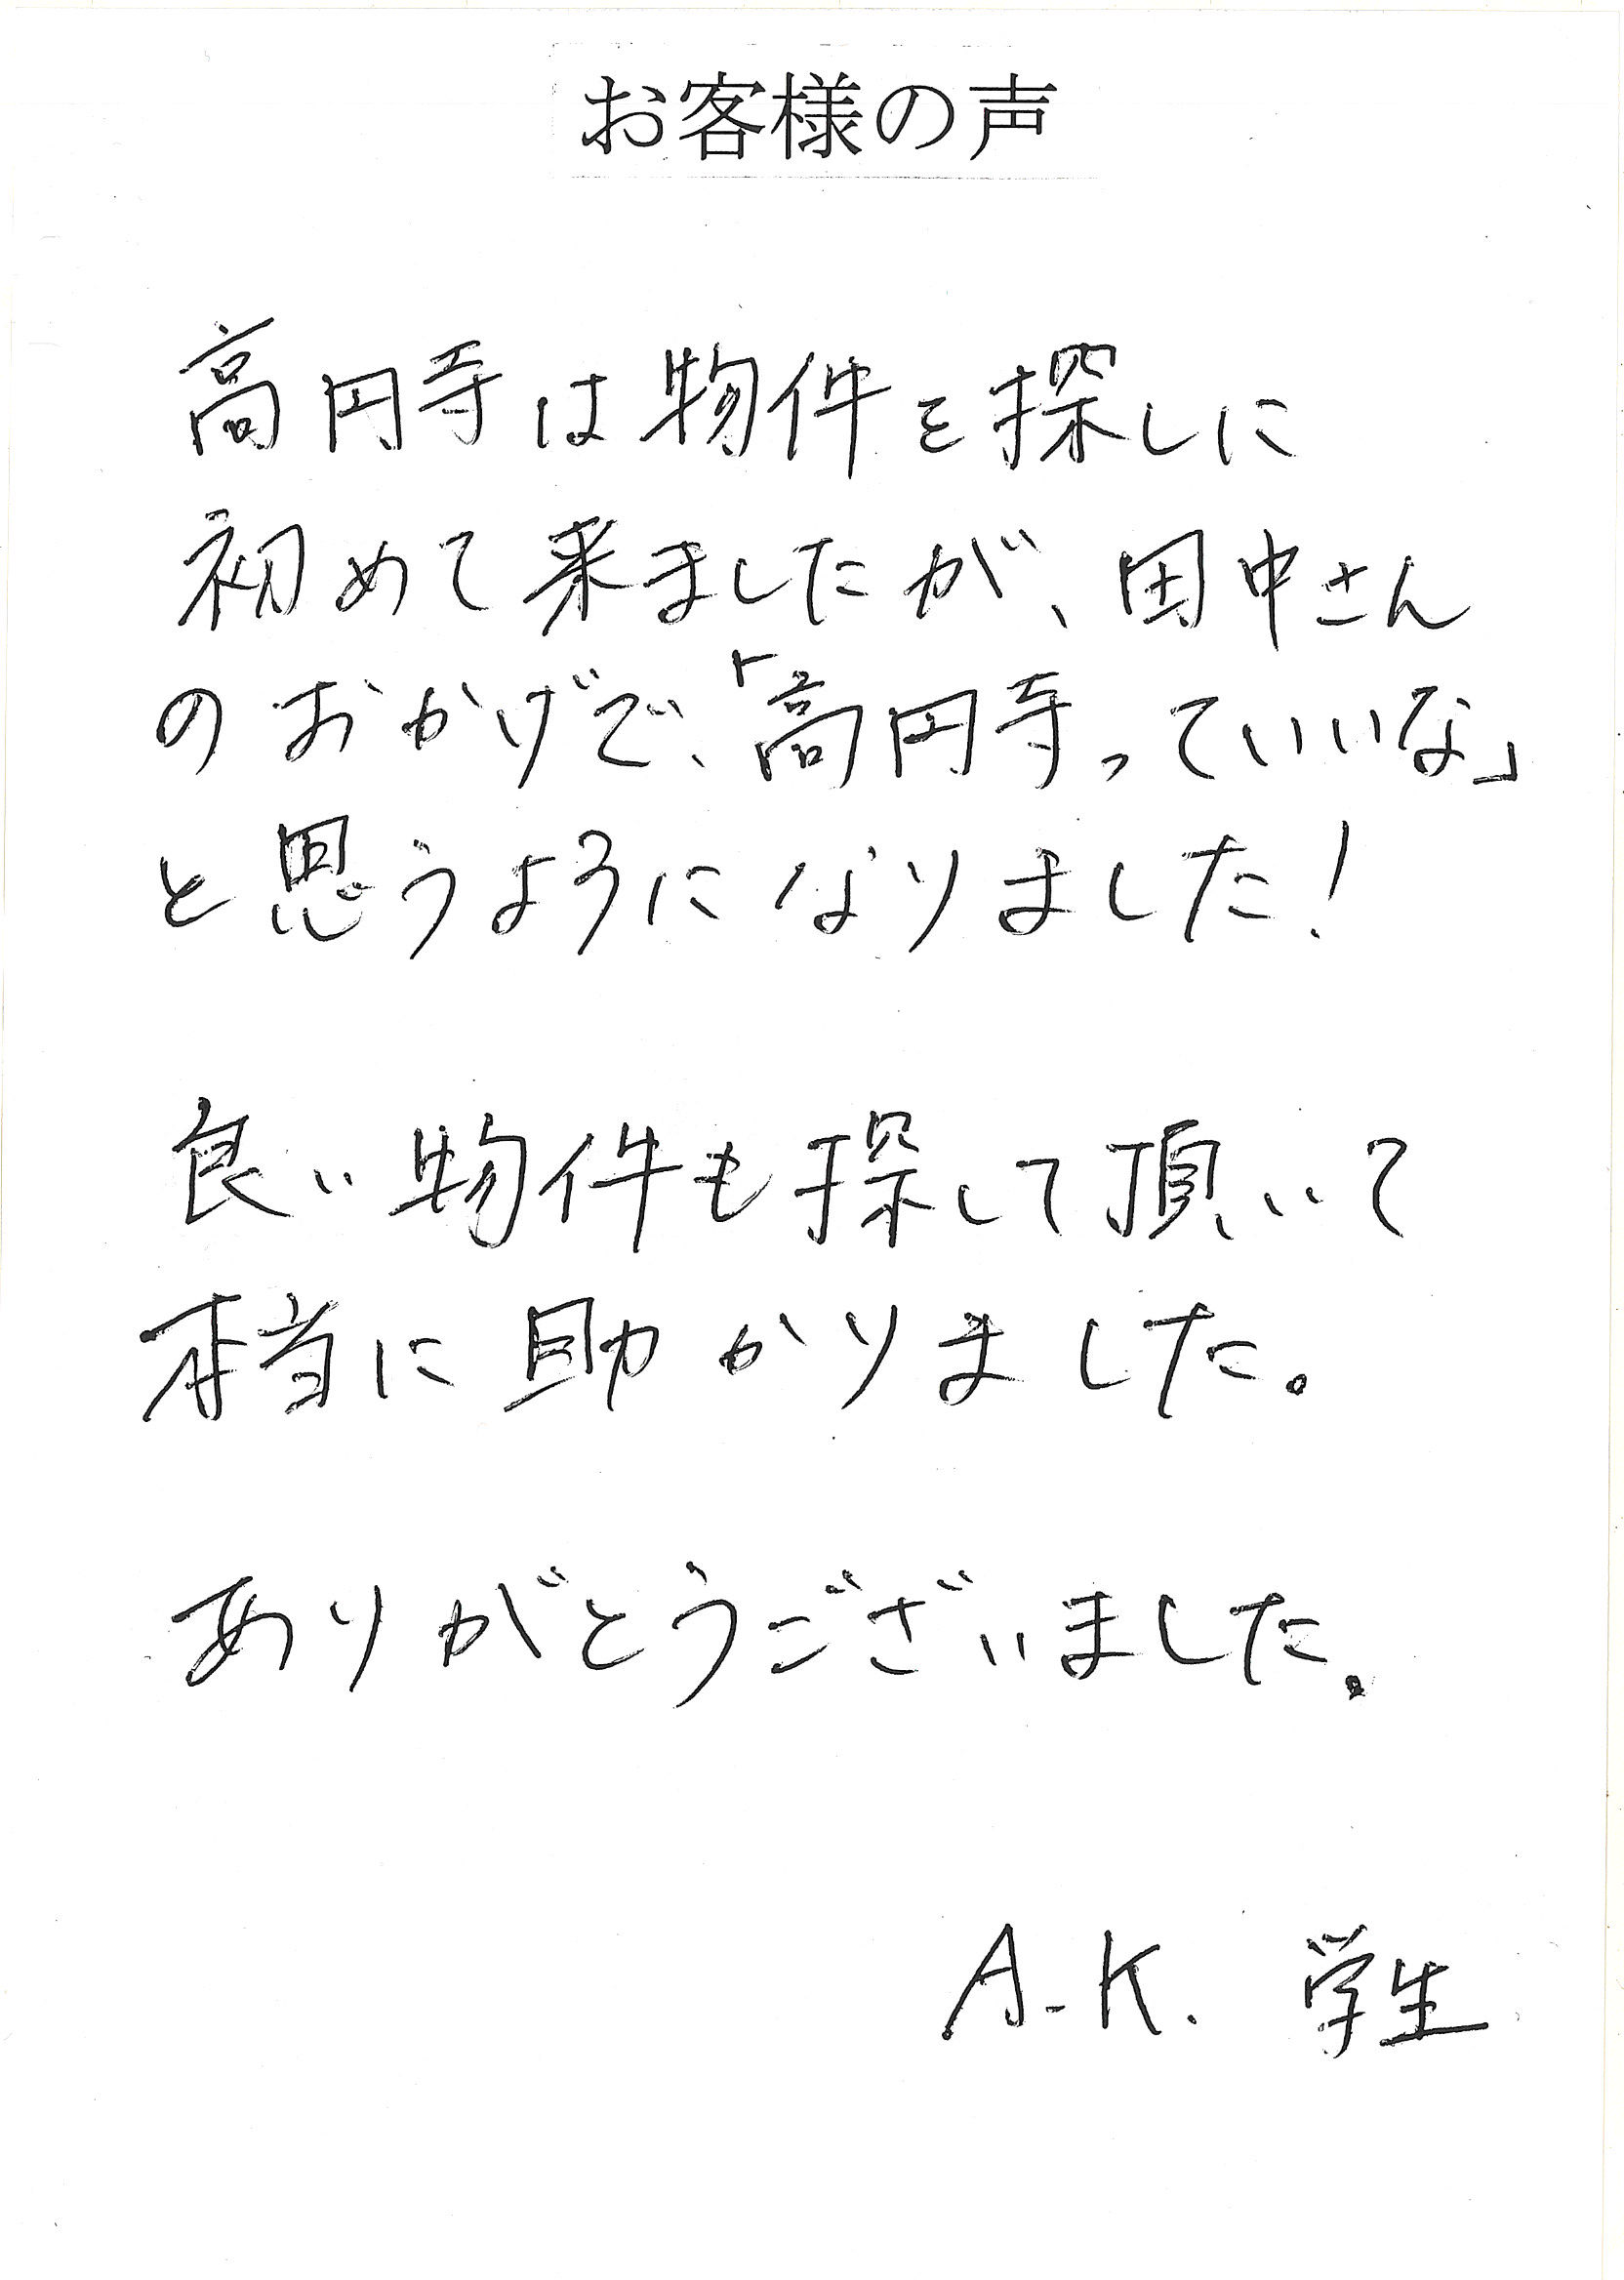 お客様の声
高円寺は物件を探しに
初めて来ましたが、田中さん
のおかげで、「高円寺っていいな」
と思うようになりました!
良い物件も探して頂いて
本当に助かりました。
ありがとうございました。
A.K. 学生